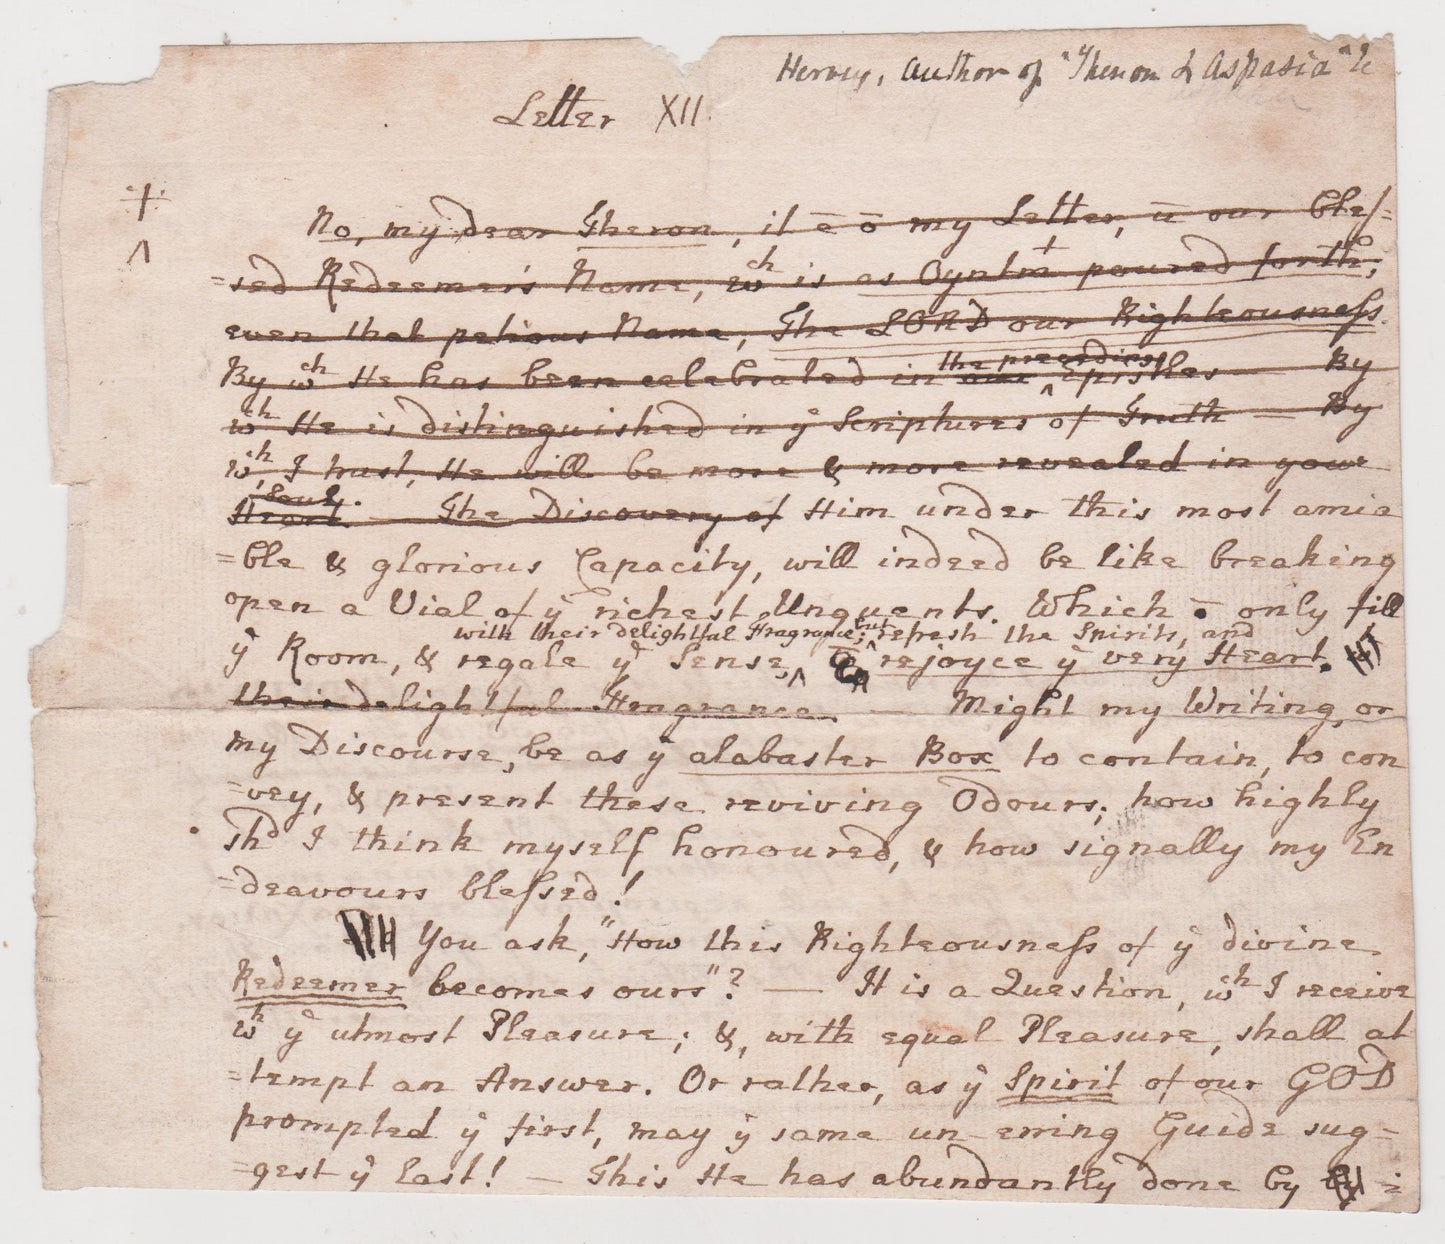 Hervey, Author of "Theron & Aspasia" &c
Letter XII.
No, my dear Theron, it ē ō my Letter, ū our Bles-
=sed Redeemer's Name, wch is as Oyntmt poured forth;
even that petious Name, The LORD our Righteousness.
By wch He has been celebrated in the preceding Epistles — By
wch He is distinguished in ye Scriptures of Truth — By
wch, I trust, He will be more & more revealed in your
Soul.
Heart. — The Discovery of Him under this most amia
=ble & glorious Capacity, will indeed be like breaking
open a Vial of ye richest Unguents. Which ō only fill
with their delightful Fragrance; but refresh the Spirits, and
ye Room, & regale ye Sense, rejoyce ye very Heart.
their delightful Fragrance. — Might my Writing, or
my Discourse, be as ye alabaster Box to contain, to con
=vey, & present these reviving Odours; how highly
shd I think myself honoured, & how signally my En
=deavours blessed!
You ask, "How this Righteousness of ye divine
Redeemer becomes ours"? — It is a Question, wch I receive
wth ye utmost Pleasure; &, with equal Pleasure, shall at
=tempt an Answer. Or rather, as ye Spirit of our GOD
prompted ye first, may ye same un-erring Guide sug=
=gest ye last! — This He has abundantly done by